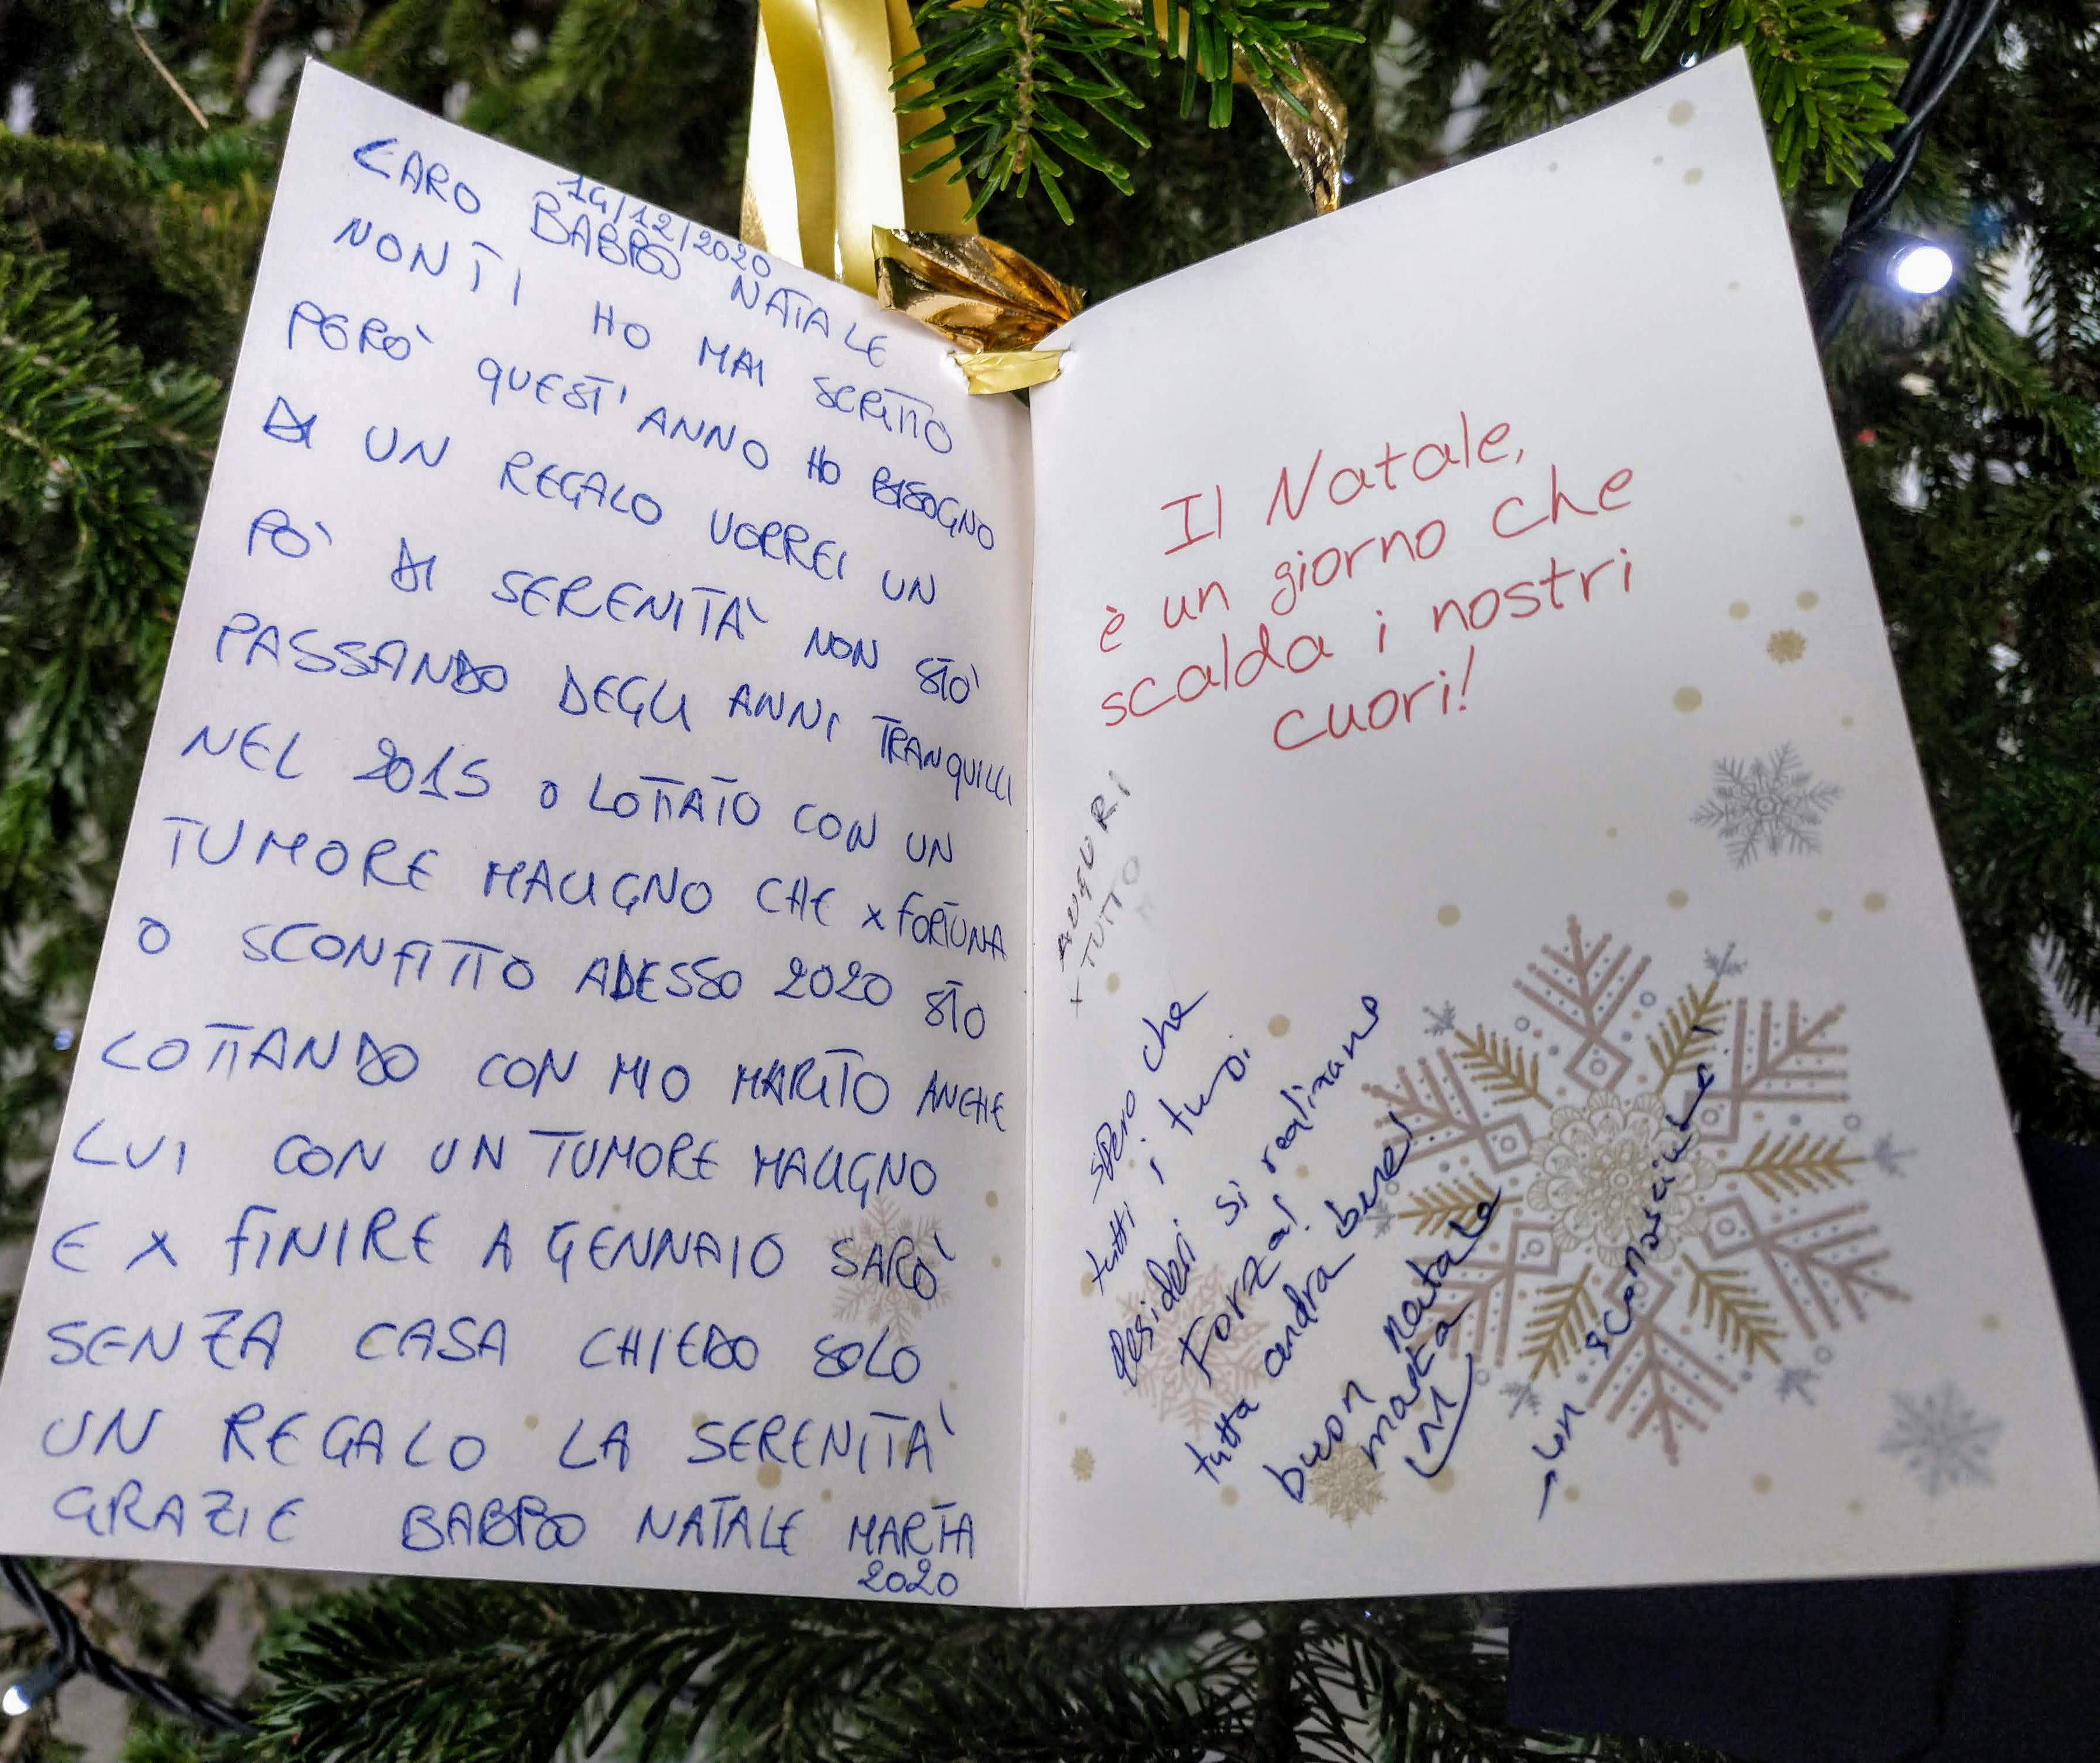 14/12/2020
CARO BABBO NATALE
NON TI HO MAI SCRITTO
PERÒ QUEST' ANNO HO BISOGNO
DI UN REGALO VORREI UN
PO' DI SERENITÀ NON STO'
PASSANDO DEGLI ANNI TRANQUILLI
NEL 2015 O LOTTATO CON UN
TUMORE MALIGNO CHE X FORTUNA
O SCONFITTO ADESSO 2020 STO
LOTTANDO CON MIO MARITO ANCHE
LUI CON UN TUMORE MALIGNO
E X FINIRE A GENNAIO SARÒ
SENZA CASA CHIEDO SOLO
UN REGALO LA SERENITÀ
GRAZIE BABBO NATALE MARTA
2020
Il Natale,
è un giorno che
scalda i nostri
cuori!
AUGURI
X TUTTO
spero che
tutti i tuoi
desideri si realizzano
Forza!
tutto andra bene!
buon Natale
marta
-un sconosciuto!